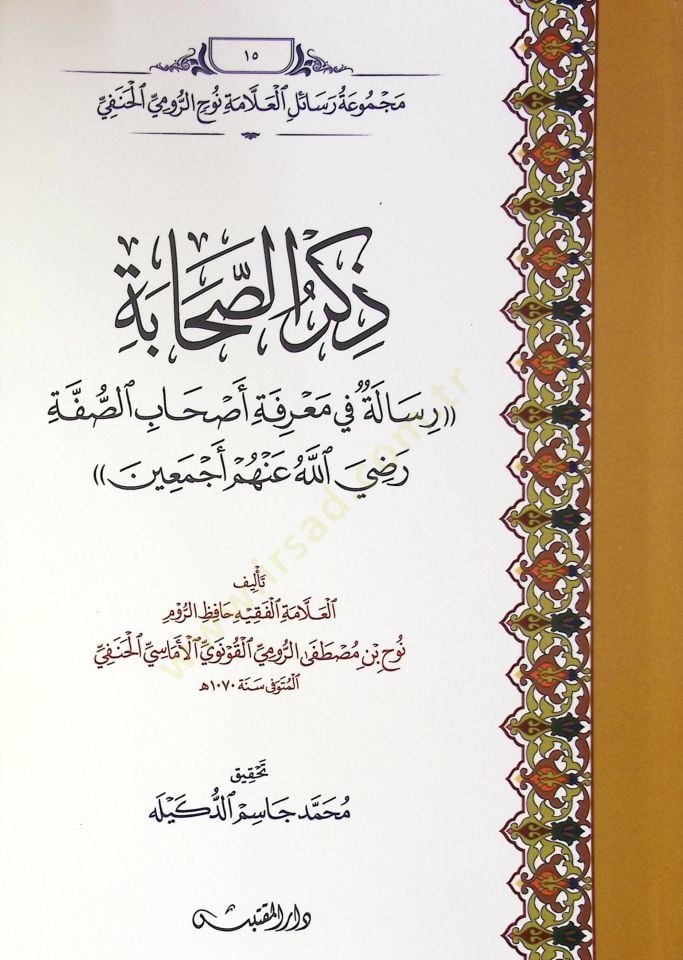 ١٥
مَجْمُوعَةُ رَسَائِلِ الْعَلَّامَةِ نُوحٍ الرُّومِيِّ الْحَنَفِيِّ
ذِكْرُ الصَّحَابَةِ
«رِسَالَةٌ فِي مَعْرِفَةِ أَصْحَابِ الصُّفَّةِ
رَضِيَ اللَّهُ عَنْهُمْ أَجْمَعِينَ»
تَأْلِيف
الْعَلَّامَةِ الْفَقِيهِ حَافِظِ الرُّومِ
نُوحِ بْنِ مُصْطَفَى الرُّومِيِّ الْقُونَوِيِّ الْأَمَاسِيِّ الْحَنَفِيِّ
الْمُتَوَفَّى سَنَة ١٠٧٠هـ
تَحْقِيق
مُحَمَّد جَاسِم الدُّكَيْلَه
دار المقتبس
www.irsad.com.tr